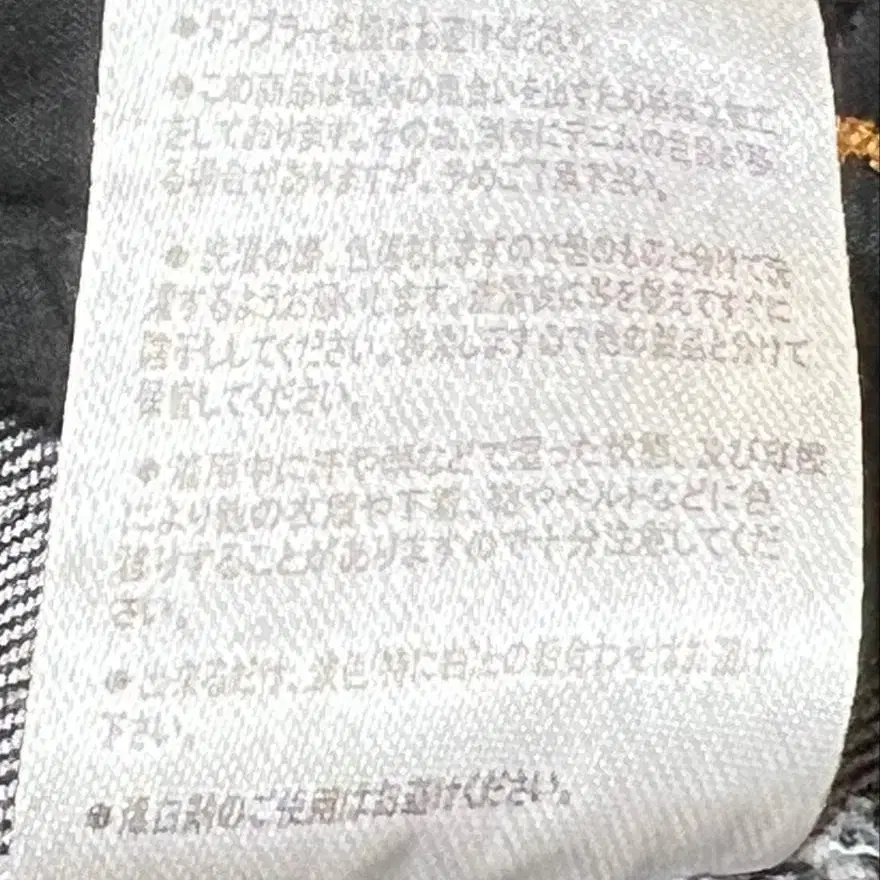 ●タンブラー乾燥はお避けください。
●この商品は独特の風合いを出すため特殊な加工
をしております。その為、別布にデニムの色目が移
る場合がありますが、予めご了承下さい。
●洗濯の際、色落ちしますので他のものと分けて洗
濯するようお願いします。洗濯後は形を整えてすぐに
陰干ししてください。移染しますので他の製品と分けて
保管してください。
●着用中に汗や雨などで湿った状態、及び摩擦
により他の衣服や下着、靴やベルトなどに色
移りすることがありますので十分注意してくだ
さい。
●出来るだけ、淡色(特に白)とのお合わせはお避け
下さい。
●蛋白剤のご使用はお避けください。